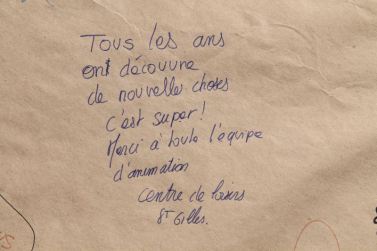 Tous les ans
ont découvre
de nouvelles choses
c'est super!
Merci à toute l'équipe
d'animation
centre de loisirs
ST Gilles.